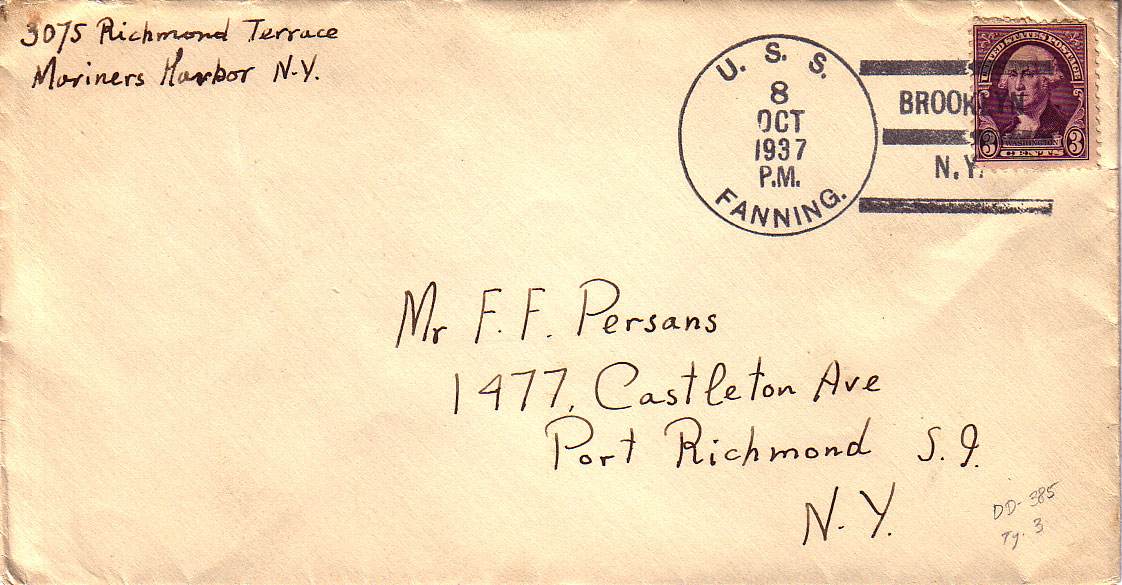 3075 Richmond Terrace
Mariners Harbor N.Y.
U. S. S.
8
OCT
1937
P.M.
FANNING.
BROOKLYN
N.Y.
UNITED STATES POSTAGE
3 WASHINGTON 3
CENTS
Mr F. F. Persans
1477, Castleton Ave
Port Richmond S. I.
N. Y.
DD-385
Ty. 3